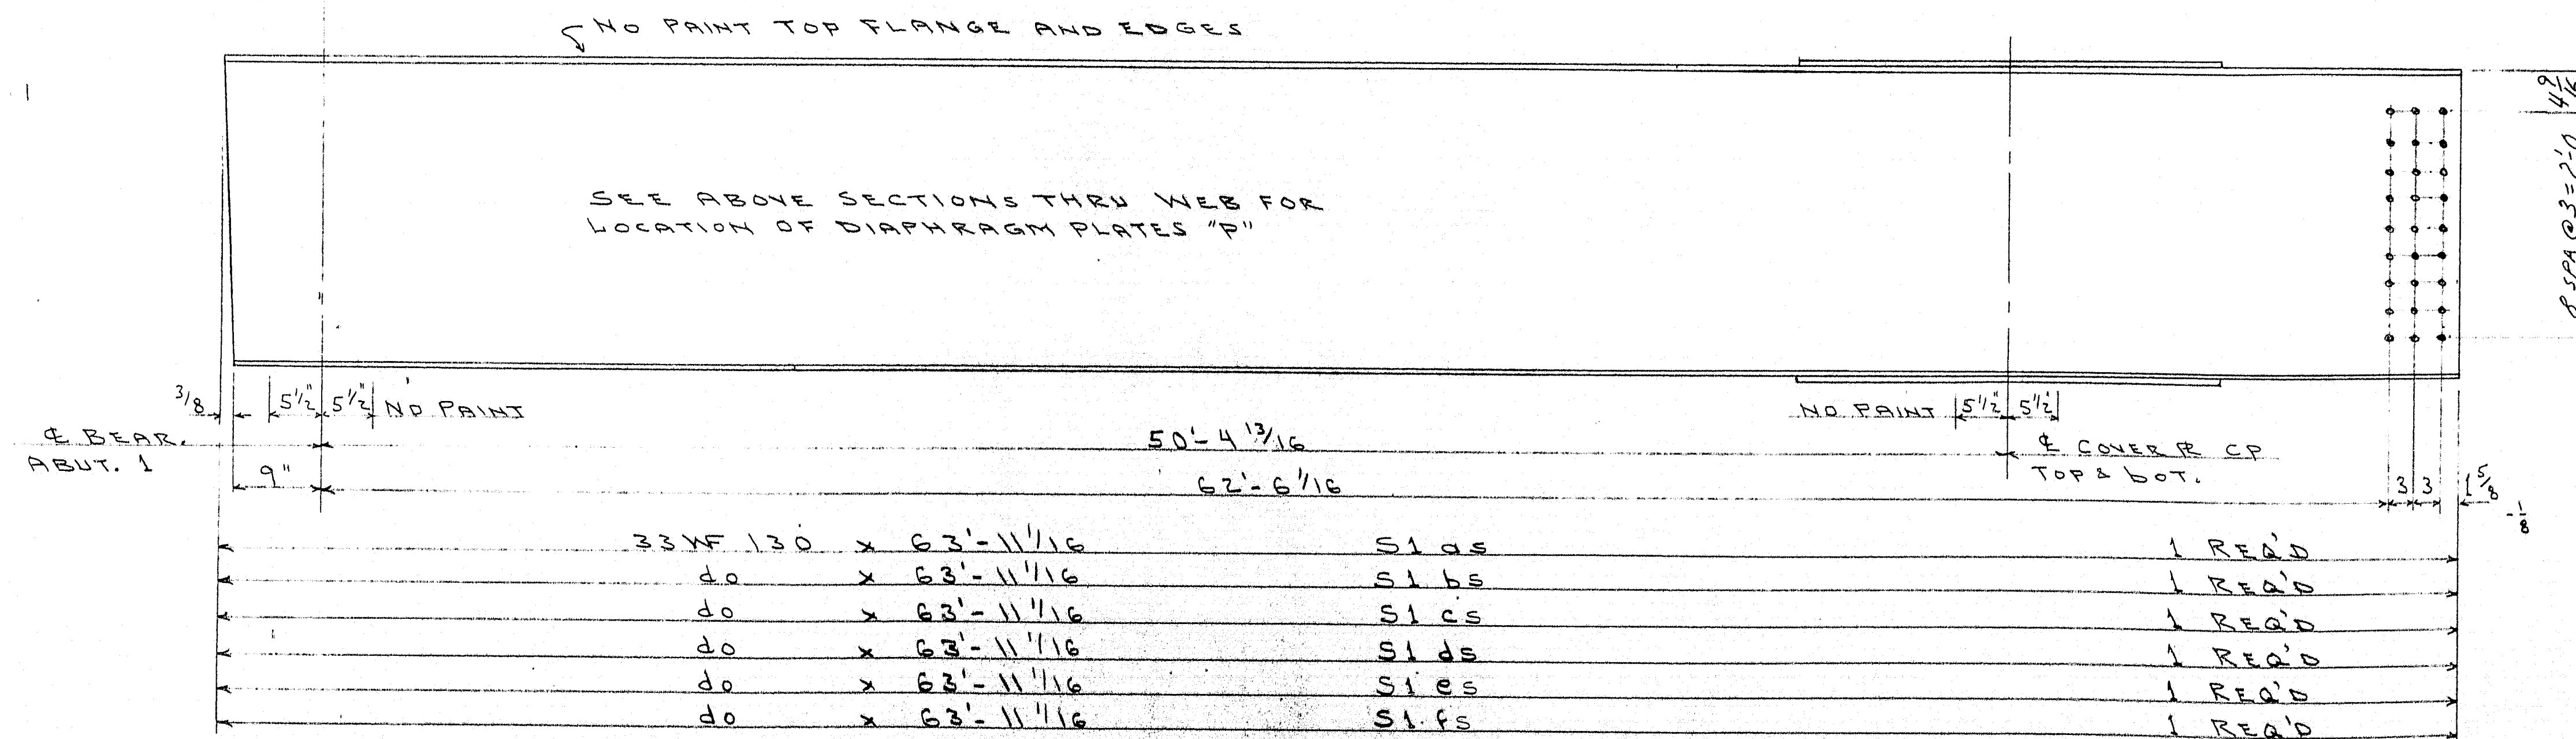 NO PAINT TOP FLANGE AND EDGES
4 9/16
8 SPA @ 3 = 2'-0
SEE ABOVE SECTIONS THRU WEB FOR
LOCATION OF DIAPHRAGM PLATES "P"
3/8 5 1/2" 5 1/2" NO PAINT
NO PAINT 5 1/2" 5 1/2"
℄ BEAR.
ABUT. 1
50'-4 13/16
℄ COVER ℞ CP
TOP & BOT.
9"
62'-6 1/16
3 3 1 5/8
-1/8
33 WF 130 x 63'-11 1/16 S1 as 1 REQ'D
do x 63'-11 1/16 S1 bs 1 REQ'D
do x 63'-11 1/16 S1 cs 1 REQ'D
do x 63'-11 1/16 S1 ds 1 REQ'D
do x 63'-11 1/16 S1 es 1 REQ'D
do x 63'-11 1/16 S1 fs 1 REQ'D